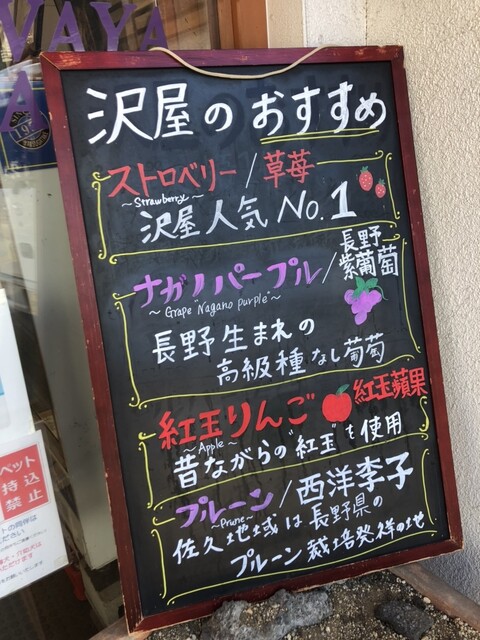 VAYA
沢屋のおすすめ
ストロベリー/草苺
~Strawberry~
沢屋人気No.1
ナガノパープル/長野紫葡萄
~Grape "Nagano purple"~
長野生まれの
高級種なし葡萄
紅玉りんご 紅玉蘋果
~Apple~
昔ながらの"紅玉"を使用
プルーン/西洋李子
~Prune~
佐久地域は長野県の
プルーン栽培発祥の地
ペット
持込
禁止